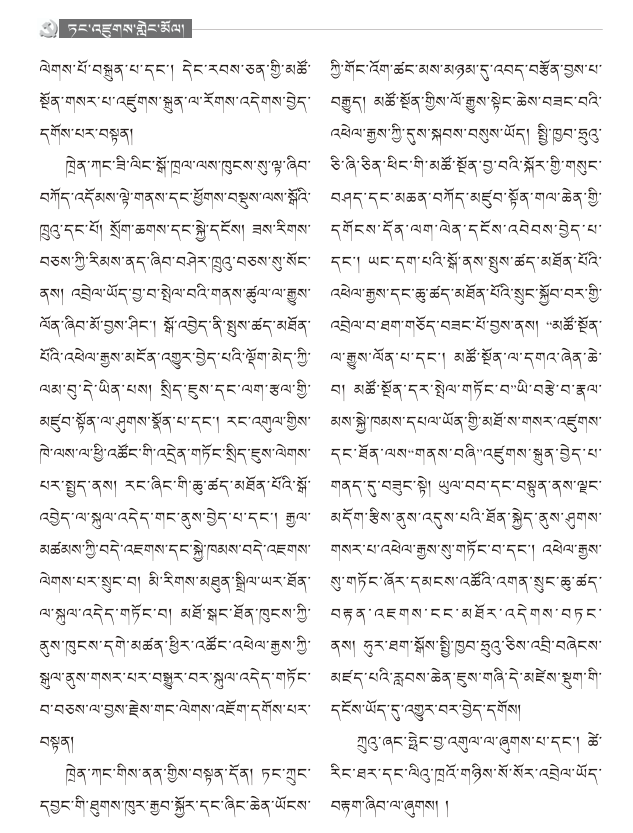 ཏང་འཛུགས་གླེང་མོལ།
ལེགས་པོ་བསྐྲུན་པ་དང་། དེང་རབས་ཅན་གྱི་མཚོ་
སྔོན་གསར་པ་འཛུགས་སྐྲུན་ལ་རོགས་འདེགས་བྱེད་
དགོས་པར་བསྟན།
ཁྲེན་ཀང་ཟི་ལིང་སྒོ་ཁྲལ་ལས་ཁུངས་སུ་ལྟ་ཞིབ་
བཀོད་འདོམས་ལྟེ་གནས་དང་ཕྱོགས་བསྡུས་ལས་སྒོའི་
ཁྲུའུ་དང་པོ། སྲོག་ཆགས་དང་སྐྱེ་དངོས། ཟས་རིགས་
བཅས་ཀྱི་རིམས་ནད་ཞིབ་བཤེར་ཁྲུའུ་བཅས་སུ་སོང་
ནས། འབྲེལ་ཡོད་བྱ་བ་སྤེལ་བའི་གནས་ཚུལ་ལ་རྒྱུས་
ལོན་ཞིབ་མོ་བྱས་ཤིང་། སྒོ་འབྱེད་ནི་སྤུས་ཚད་མཐོན་
པོའི་འཕེལ་རྒྱས་མངོན་འགྱུར་བྱེད་པའི་ལྡོག་མེད་ཀྱི་
ལམ་བུ་དེ་ཡིན་པས། སྲིད་ཇུས་དང་ལག་རྩལ་གྱི་
མཛུབ་སྟོན་ལ་ཤུགས་སྣོན་པ་དང་། རང་འགུལ་གྱིས་
ཁེ་ལས་ལ་ཕྱི་འཚོང་གི་འདྲེན་གཏོང་སྲིད་ཇུས་ལེགས་
པར་སྤྱད་ནས། རང་ཞིང་གི་ཆུ་ཚད་མཐོན་པོའི་སྒོ་
འབྱེད་ལ་སྐུལ་འདེད་གང་ནུས་བྱེད་པ་དང་། རྒྱལ་
མཚམས་ཀྱི་བདེ་འཇགས་དང་སྐྱེ་ཁམས་བདེ་འཇགས་
ལེགས་པར་སྲུང་བ། མི་རིགས་མཐུན་སྒྲིལ་ཡར་ཐོན་
ལ་སྐུལ་འདེད་གཏོང་བ། མཐོ་སྒང་ཐོན་ཁུངས་ཀྱི་
ནུས་ཁུངས་དགེ་མཚན་ཕྱིར་འཚོང་འཕེལ་རྒྱས་ཀྱི་
སྒུལ་ནུས་གསར་པར་བསྒྱུར་བར་སྐུལ་འདེད་གཏོང་
བ་བཅས་ལ་བྱས་རྗེས་གང་ལེགས་འཇོག་དགོས་པར་
བསྟན།
ཁྲེན་ཀང་གིས་ནན་གྱིས་བསྟན་དོན། ཏང་ཀྲུང་
དབྱང་གི་ཐུགས་ཁུར་རྒྱབ་སྐྱོར་དང་ཞིང་ཆེན་ཡོངས་
ཀྱི་གོང་འོག་ཚང་མས་མཉམ་དུ་འབད་བརྩོན་བྱས་པ་
བརྒྱུད། མཚོ་སྔོན་གྱིས་ལོ་རྒྱུས་སྟེང་ཆེས་བཟང་བའི་
འཕེལ་རྒྱས་ཀྱི་དུས་སྐབས་བསུས་ཡོད། སྤྱི་ཁྱབ་ཧྲུའུ་
ཅི་ཞི་ཅིན་ཕིང་གི་མཚོ་སྔོན་བྱ་བའི་སྐོར་གྱི་གསུང་
བཤད་དང་མཆན་བཀོད་མཛུབ་སྟོན་གལ་ཆེན་གྱི་
དགོངས་དོན་ལག་ལེན་དངོས་འབེབས་བྱེད་པ་
དང་། ཡང་དག་པའི་སྒོ་ནས་སྤུས་ཚད་མཐོན་པོའི་
འཕེལ་རྒྱས་དང་ཆུ་ཚད་མཐོན་པོའི་སྲུང་སྐྱོབ་བར་གྱི་
འབྲེལ་བ་ཐག་གཅོད་བཟང་པོ་བྱས་ནས། “མཚོ་སྔོན་
ལ་རྒྱུས་ལོན་པ་དང་། མཚོ་སྔོན་ལ་དགའ་ཞེན་ཆེ་
བ། མཚོ་སྔོན་དར་སྤེལ་གཏོང་བ”ཡི་བརྩེ་བ་རྣལ་
མས་སྐྱེ་ཁམས་དཔལ་ཡོན་གྱི་མཐོ་ས་གསར་འཛུགས་
དང་ཐོན་ལས“གནས་བཞི”འཛུགས་སྐྲུན་བྱེད་པ་
གནད་དུ་བཟུང་སྟེ། ཡུལ་བབ་དང་བསྟུན་ནས་ལྗང་
མདོག་རྩིས་ནུས་འདུས་པའི་ཐོན་སྐྱེད་ནུས་ཤུགས་
གསར་པ་འཕེལ་རྒྱས་སུ་གཏོང་བ་དང་། འཕེལ་རྒྱས་
སུ་གཏོང་ཞོར་དམངས་འཚོའི་འགན་སྲུང་ཆུ་ཚད་
བརྟན་འཇགས་ངང་མཐོར་འདེགས་བཏང་
ནས། ཧུར་ཐག་སྒོས་སྤྱི་ཁྱབ་ཧྲུའུ་ཅིས་འབྲི་བཞེངས་
མཛད་པའི་རླབས་ཆེན་ཇུས་གཞི་དེ་མཛེས་སྡུག་གི་
དངོས་ཡོད་དུ་འགྱུར་བར་བྱེད་དགོས།
ཀྲུའུ་ཞང་ཧྥེང་བྱ་འགུལ་ལ་ཞུགས་པ་དང་། ཚེ་
རིང་ཐར་དང་ལིའུ་ཁྲའོ་གཉིས་སོ་སོར་འབྲེལ་ཡོད་
བརྟག་ཞིབ་ལ་ཞུགས། །